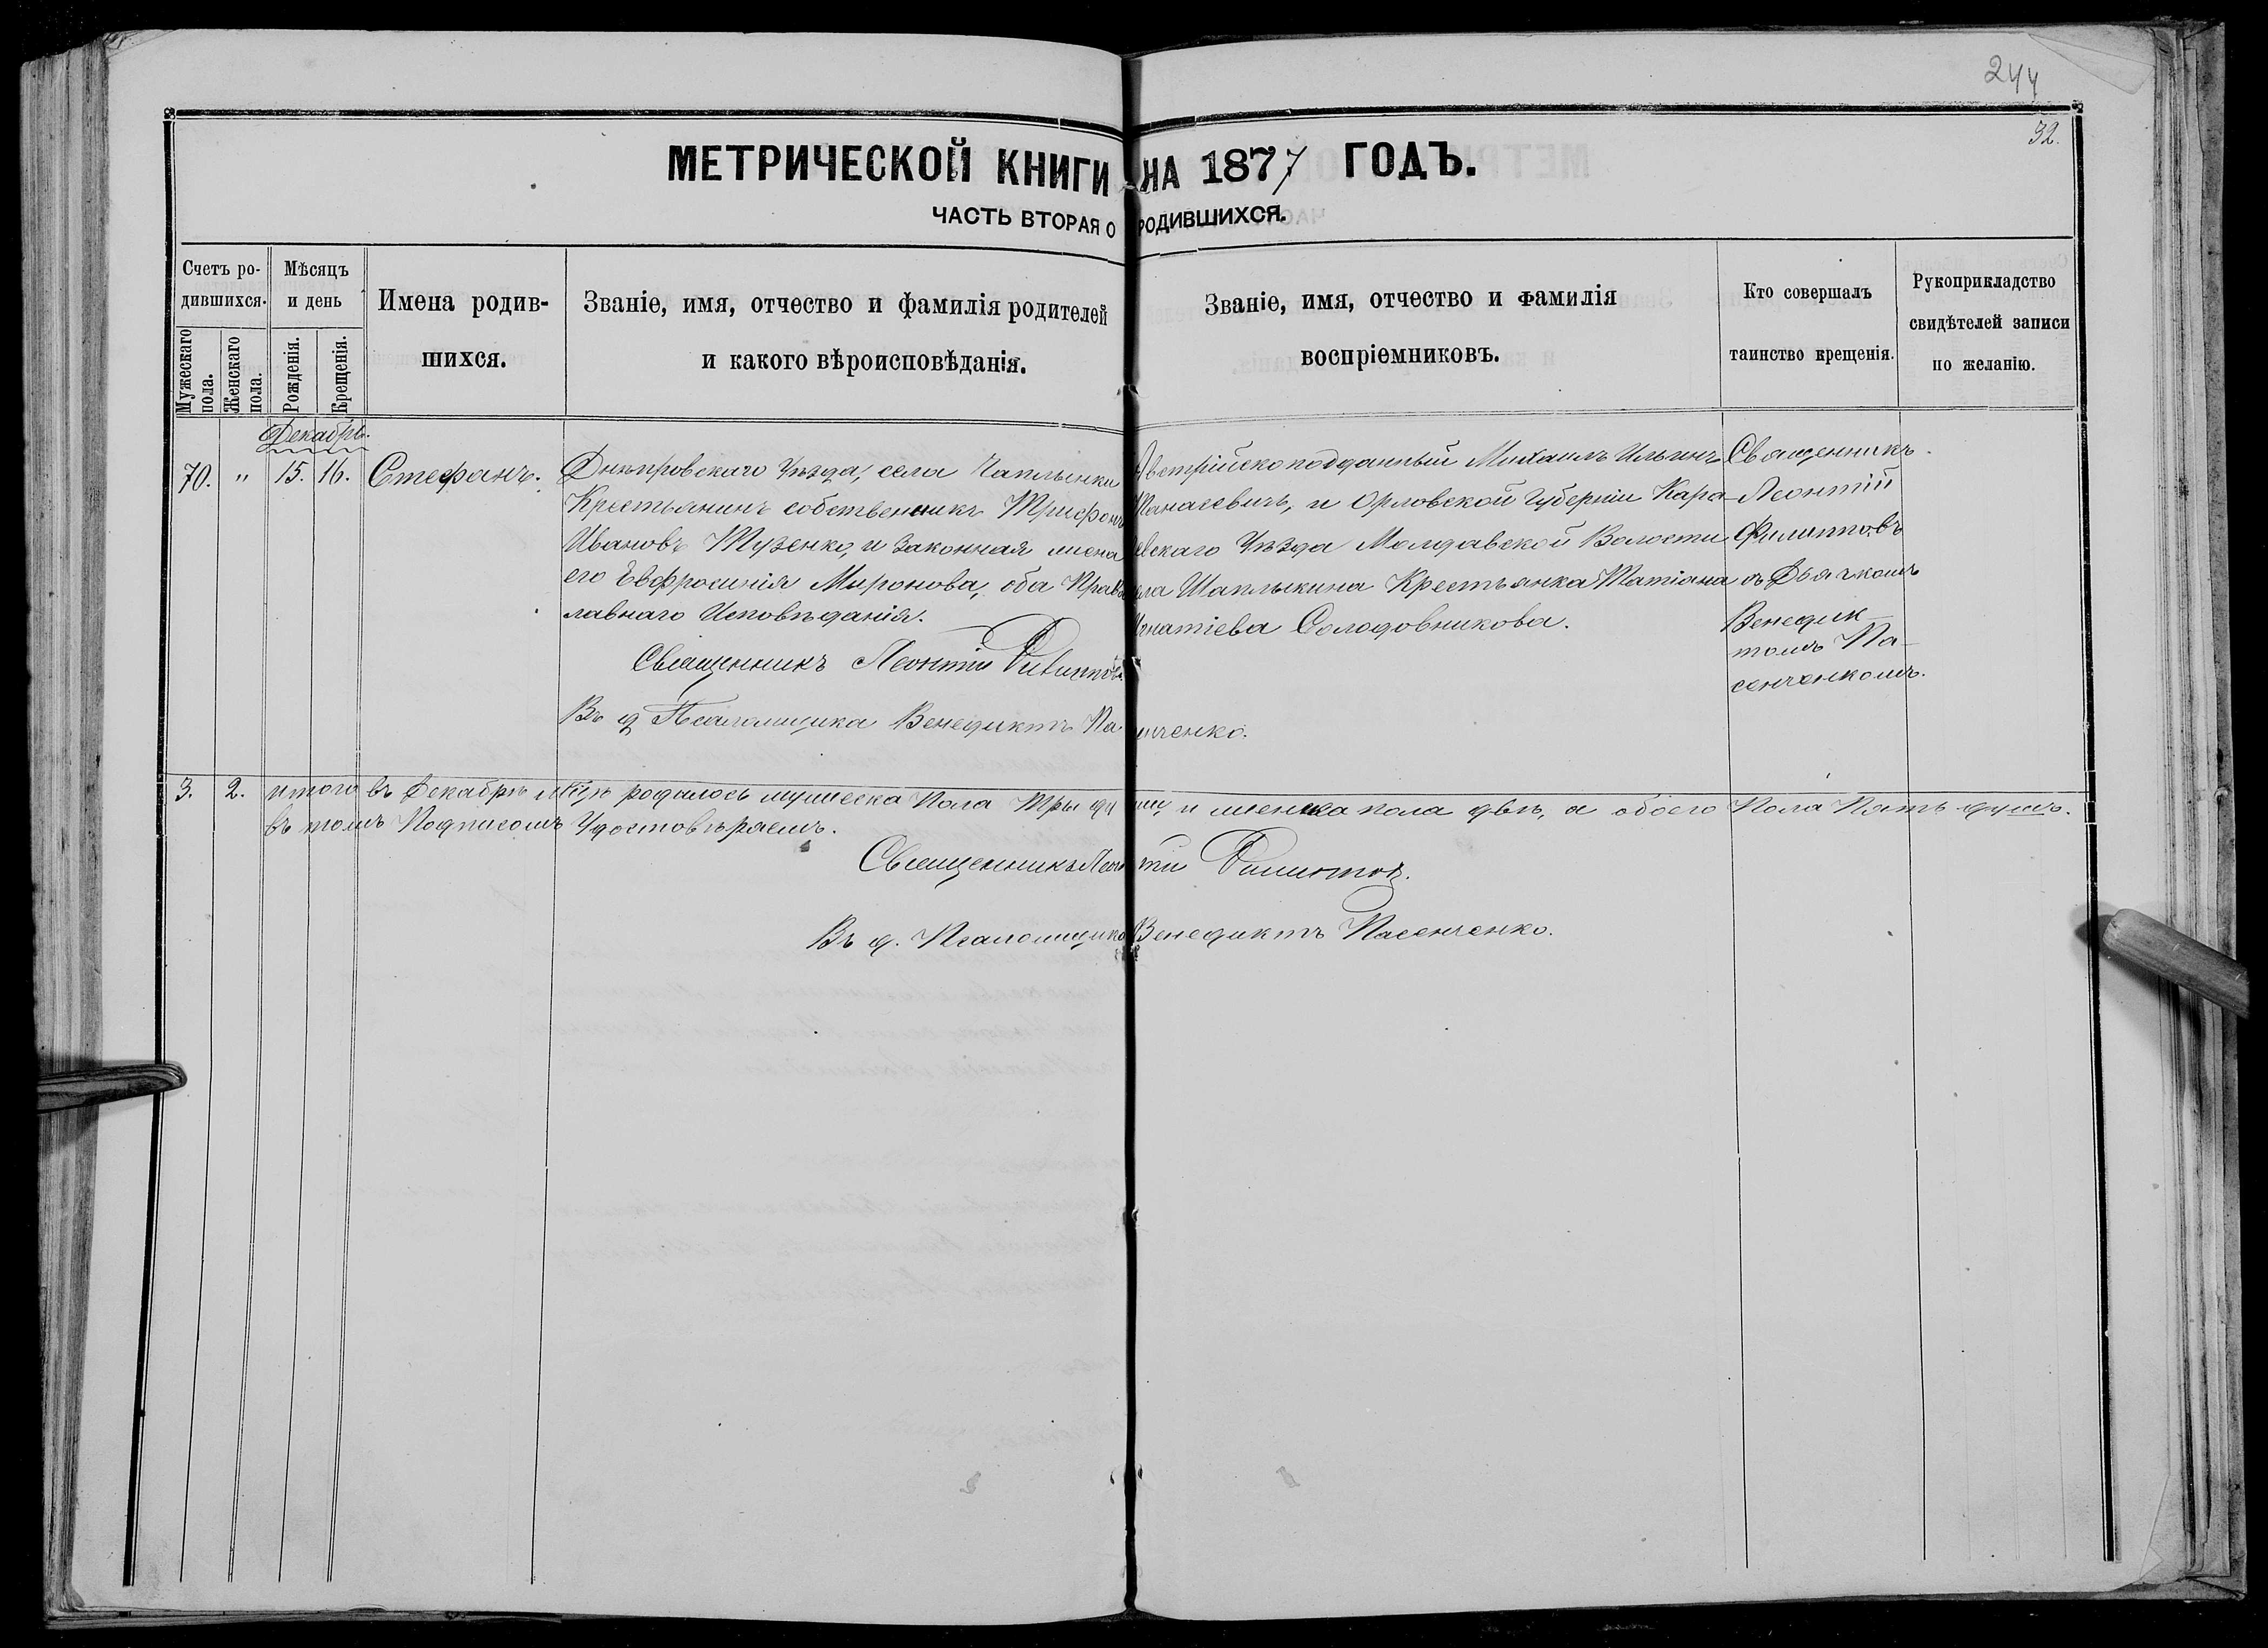 244
32.
МЕТРИЧЕСКОЙ КНИГИ НА 1877 ГОДЪ.
ЧАСТЬ ВТОРАЯ О РОДИВШИХСЯ.
Счетъ ро-
дившихся.
Мужескаго
пола.
Женскаго
пола.
Мѣсяцъ
и день
Рожденія.
Крещенія.
Имена родив-
шихся.
Званіе, имя, отчество и фамилія родителей
и какого вѣроисповѣданія.
Званіе, имя, отчество и фамилія
воспріемниковъ.
Кто совершалъ
таинство крещенія.
Рукоприкладство
свидѣтелей записи
по желанію.
Декабрь.
70. " 15. 16. Стефанъ.
Днѣпровскаго Уѣзда, села Чаплынки
Крестьянинъ собственникъ Трифонъ
Ивановъ Тузенко, и законная жена
его Евфросинія Миронова, оба Право
лавнаго Исповѣданія.
Священникъ Леонтій Филипповъ.
Въ д Псаломщика Венедиктъ Па енченко.
Австрійскоподданный Михаилъ Ильинъ
Танасевичъ, и Орловской Губерніи Кара
евскаго Уѣзда Молдавской Волости
села Шаплыкина Крестьянка Татіана
Игнатіева Солодовникова.
Священникъ
Леонтій
Филипповъ
съ Дьячкомъ
Венедик
томъ Па-
сенченкомъ.
3. 2. итого въ Декабрѣ м-цѣ родилось мужеска Пола Три ду ши, и женска пола двѣ, а обоего Пола Пять душъ.
въ томъ Подписомъ Удостовѣряемъ.
Священникъ Леонтій Филипповъ.
Въ д. Псаломщика Венедиктъ Пасенченко.